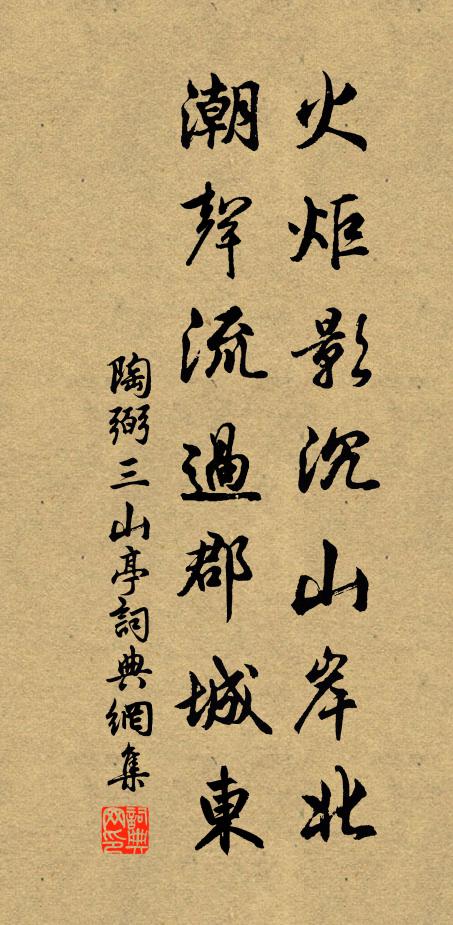 火炬影沉山岸北
潮聲流過郡城東
陶弼三山亭詞典網集
詞典網印